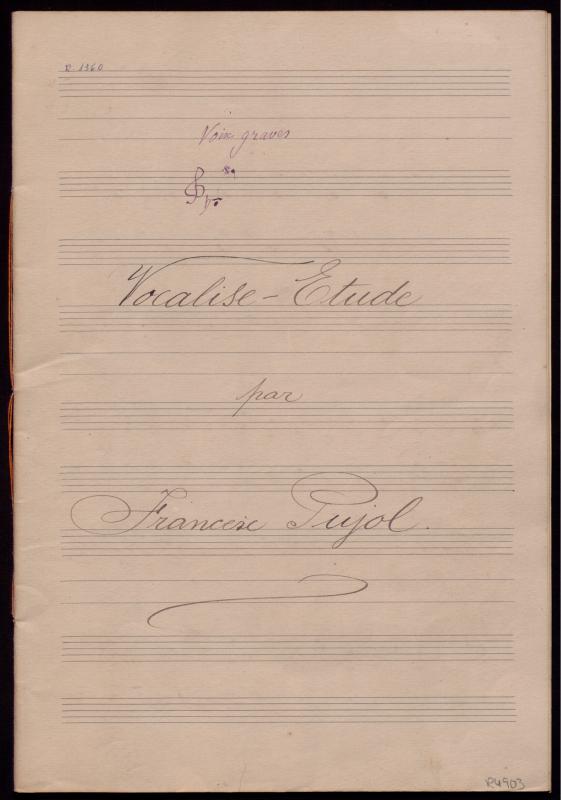 R. 1360
Voix graves
Vocalise-Etude
par
Francesc Pujol.
R4903